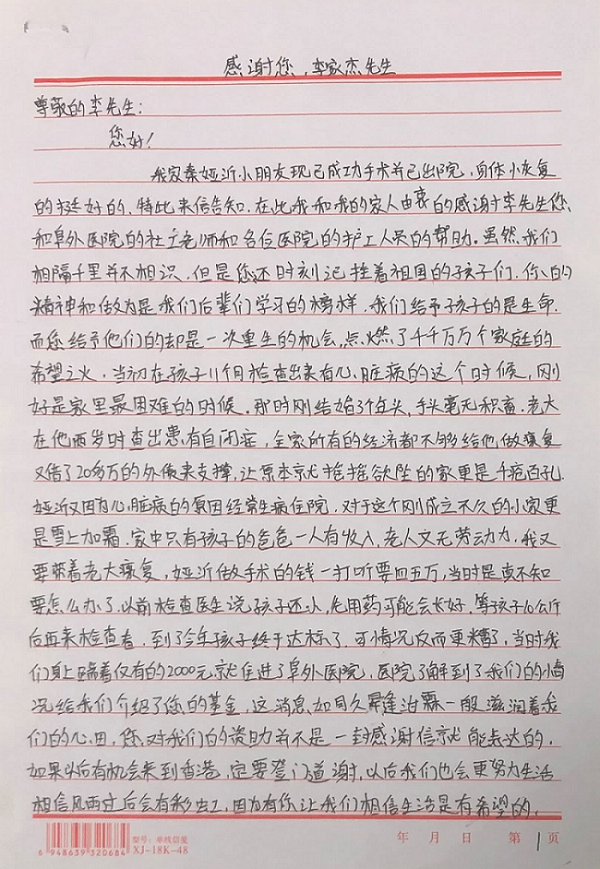 感谢您，李家杰先生
尊敬的李先生：
您好！
我家秦娅沂小朋友现已成功手术并已出院，身体恢复
的挺好的，特此来信告知，在此我和我的家人由衷的感谢李先生您
和阜外医院的社工老师和各位医院的护工人员的帮助。虽然我们
相隔千里并不相识，但是您还时刻记挂着祖国的孩子们，你的
精神和做为是我们后辈们学习的榜样，我们给予孩子的是生命，
而您给予他们的却是一次重生的机会，点燃了千千万万个家庭的
希望之火，当初在孩子11个月检查出来有心脏病的这个时候，刚
好是家里最困难的时候。那时刚结婚3个年头，手头毫无积畜。老大
在他两岁时查出患有自闭症，全家所有的经济都不够给他做康复
又借了20多万的外债来支撑，让原本就摇摇欲坠的家更是千疮百孔，
娅沂又因有心脏病的原因经常生病住院，对于这个刚成立不久的小家更
是雪上加霜，家中只有孩子的爸爸一人有收入，老人又无劳动力，我又
要带着老大康复，娅沂做手术的钱一打听要四五万，当时是真不知
要怎么办了，以前检查医生说孩子还小，先用药可能会长好，等孩子10公斤
后再来检查看，到了今年孩子终于达标了，可情况反而更糟了，当时我
们身上揣着仅有的2000元就住进了阜外医院，医院了解到了我们的情
况给我们介绍了您的基金，这消息如同久旱逢甘霖一般滋润着我
们的心田，您对我们的资助并不是一封感谢信就能表达的，
如果以后有机会来到香港，定要登门道谢，以后我们也会更努力生活
相信风雨过后会有彩虹，因为有你让我们相信生活是有希望的，
6 948639 320684 型号：单线信笺 XJ-18K-48 年 月 日 第 1 页